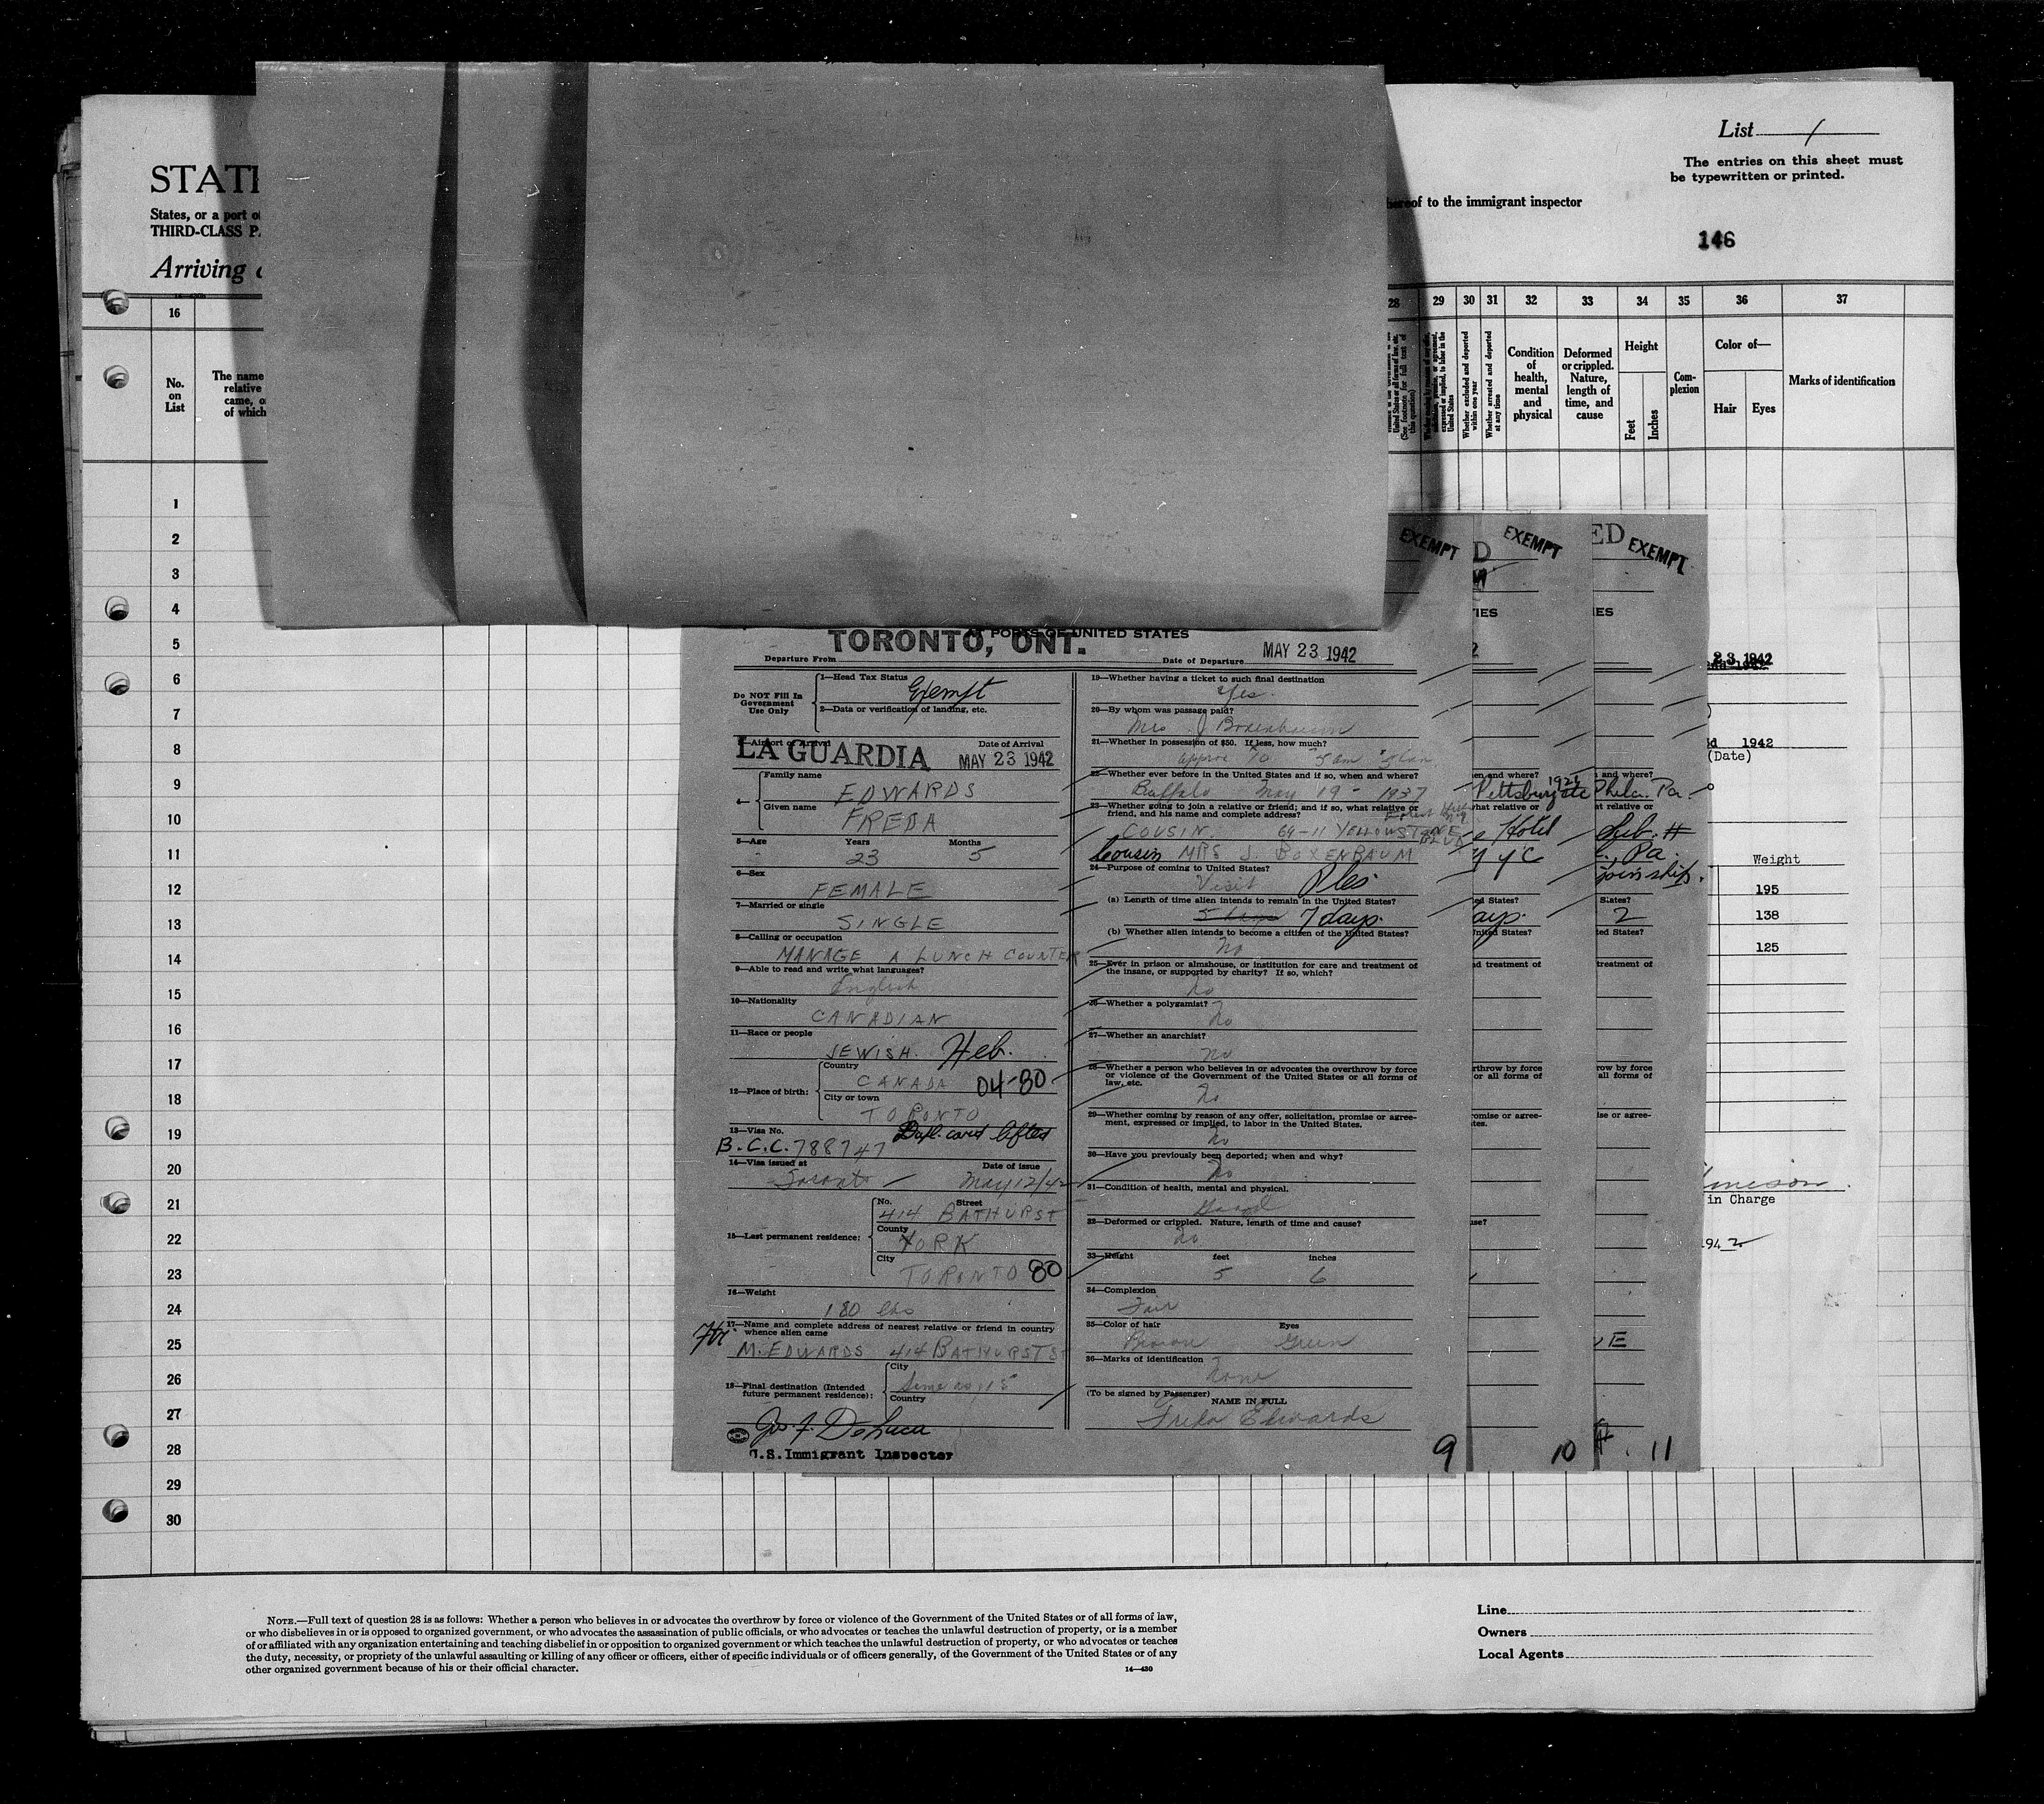 List 1
The entries on this sheet must
be typewritten or printed.
STAT
States, or a port o
THIRD-CLASS P
hereof to the immigrant inspector
Arriving
146
16
28 29 30 31 32 33 34 35 36 37
No.
on
List
The name
relative
came, o
of which
United States or all forms of law, etc.
(See footnote for full text of
this question)
expressed or implied, to labor in the
United States
Whether excluded and deported
within one year
Whether arrested and deported
at any time
Condition
of
health,
mental
and
physical
Deformed
or crippled.
Nature,
length of
time, and
cause
Height
Feet
Inches
Com-
plexion
Color of—
Hair
Eyes
Marks of identification
1
2
3
4
5
6
7
8
9
10
11
12
13
14
15
16
17
18
19
20
21
22
23
24
25
26
27
28
29
30
EXEMPT
AT PORTS OF UNITED STATES
TORONTO, ONT.
Departure From
Date of Departure MAY 23 1942
Do NOT Fill In
Government
Use Only
1—Head Tax Status
Exempt
2—Data or verification of landing, etc.
3—Airport of Arrival
Date of Arrival
LA GUARDIA MAY 23 1942
4—
Family name
EDWARDS
Given name
FREDA
5—Age Years Months
23 5
6—Sex
FEMALE
7—Married or single
SINGLE
8—Calling or occupation
MANAGE A LUNCH COUNTER
9—Able to read and write what languages?
English
10—Nationality
CANADIAN
11—Race or people
JEWISH. Heb.
12—Place of birth:
Country
CANADA 04-80
City or town
TORONTO
13—Visa No.
Dupl. card lifted
B.C.C. 788747
14—Visa issued at Date of issue
Toronto May 12/42
15—Last permanent residence:
No. Street
414 BATHURST
County
YORK
City
TORONTO 80
16—Weight
180 lbs
17—Name and complete address of nearest relative or friend in country
whence alien came
M. EDWARDS 414 BATHURST ST
18—Final destination (Intended
future permanent residence):
City
Same as 15
Country
U.S. Immigrant Inspector
19—Whether having a ticket to such final destination
Yes.
20—By whom was passage paid?
Mrs J Boxenbaum
21—Whether in possession of $50. If less, how much?
22—Whether ever before in the United States and if so, when and where?
Buffalo May 19 - 1937
23—Whether going to join a relative or friend; and if so, what relative or
friend, and his name and complete address?
COUSIN. 69-11 YELLOWSTONE BLVD
Cousin MRS J. BOXENBAUM
24—Purpose of coming to United States?
Visit Ples
(a) Length of time alien intends to remain in the United States?
5 days 7 days.
(b) Whether alien intends to become a citizen of the United States?
No
25—Ever in prison or almshouse, or institution for care and treatment of
the insane, or supported by charity? If so, which?
No
26—Whether a polygamist?
No
27—Whether an anarchist?
No
28—Whether a person who believes in or advocates the overthrow by force
or violence of the Government of the United States or all forms of
law, etc.
No
29—Whether coming by reason of any offer, solicitation, promise or agree-
ment, expressed or implied, to labor in the United States.
No
30—Have you previously been deported; when and why?
No
31—Condition of health, mental and physical.
Good
32—Deformed or crippled. Nature, length of time and cause?
No
33—Height feet inches
5 6
34—Complexion
Fair
35—Color of hair Eyes
Brown Green
36—Marks of identification
None
(To be signed by Passenger)
NAME IN FULL
Freda Edwards
9
D
EXEMPT
TIES
2
en and where?
what relative or
Hotel
NYC
ted States?
ays.
United States?
nd treatment of
rthrow by force
or all forms of
romise or agree-
tes.
use?
10
ED
EXEMPT
IES
n and where?
Phila. Pa.
at relative or
Pa.
States?
2
ted States?
treatment of
row by force
all forms of
ise or agree-
E
11
23 1942
1942
(Date)
Weight
195
138
125
in Charge
1942
NOTE.—Full text of question 28 is as follows: Whether a person who believes in or advocates the overthrow by force or violence of the Government of the United States or of all forms of law,
or who disbelieves in or is opposed to organized government, or who advocates the assassination of public officials, or who advocates or teaches the unlawful destruction of property, or is a member
of or affiliated with any organization entertaining and teaching disbelief in or opposition to organized government or which teaches the unlawful destruction of property, or who advocates or teaches
the duty, necessity, or propriety of the unlawful assaulting or killing of any officer or officers, either of specific individuals or of officers generally, of the Government of the United States or of any
other organized government because of his or their official character.
14—430
Line
Owners
Local Agents